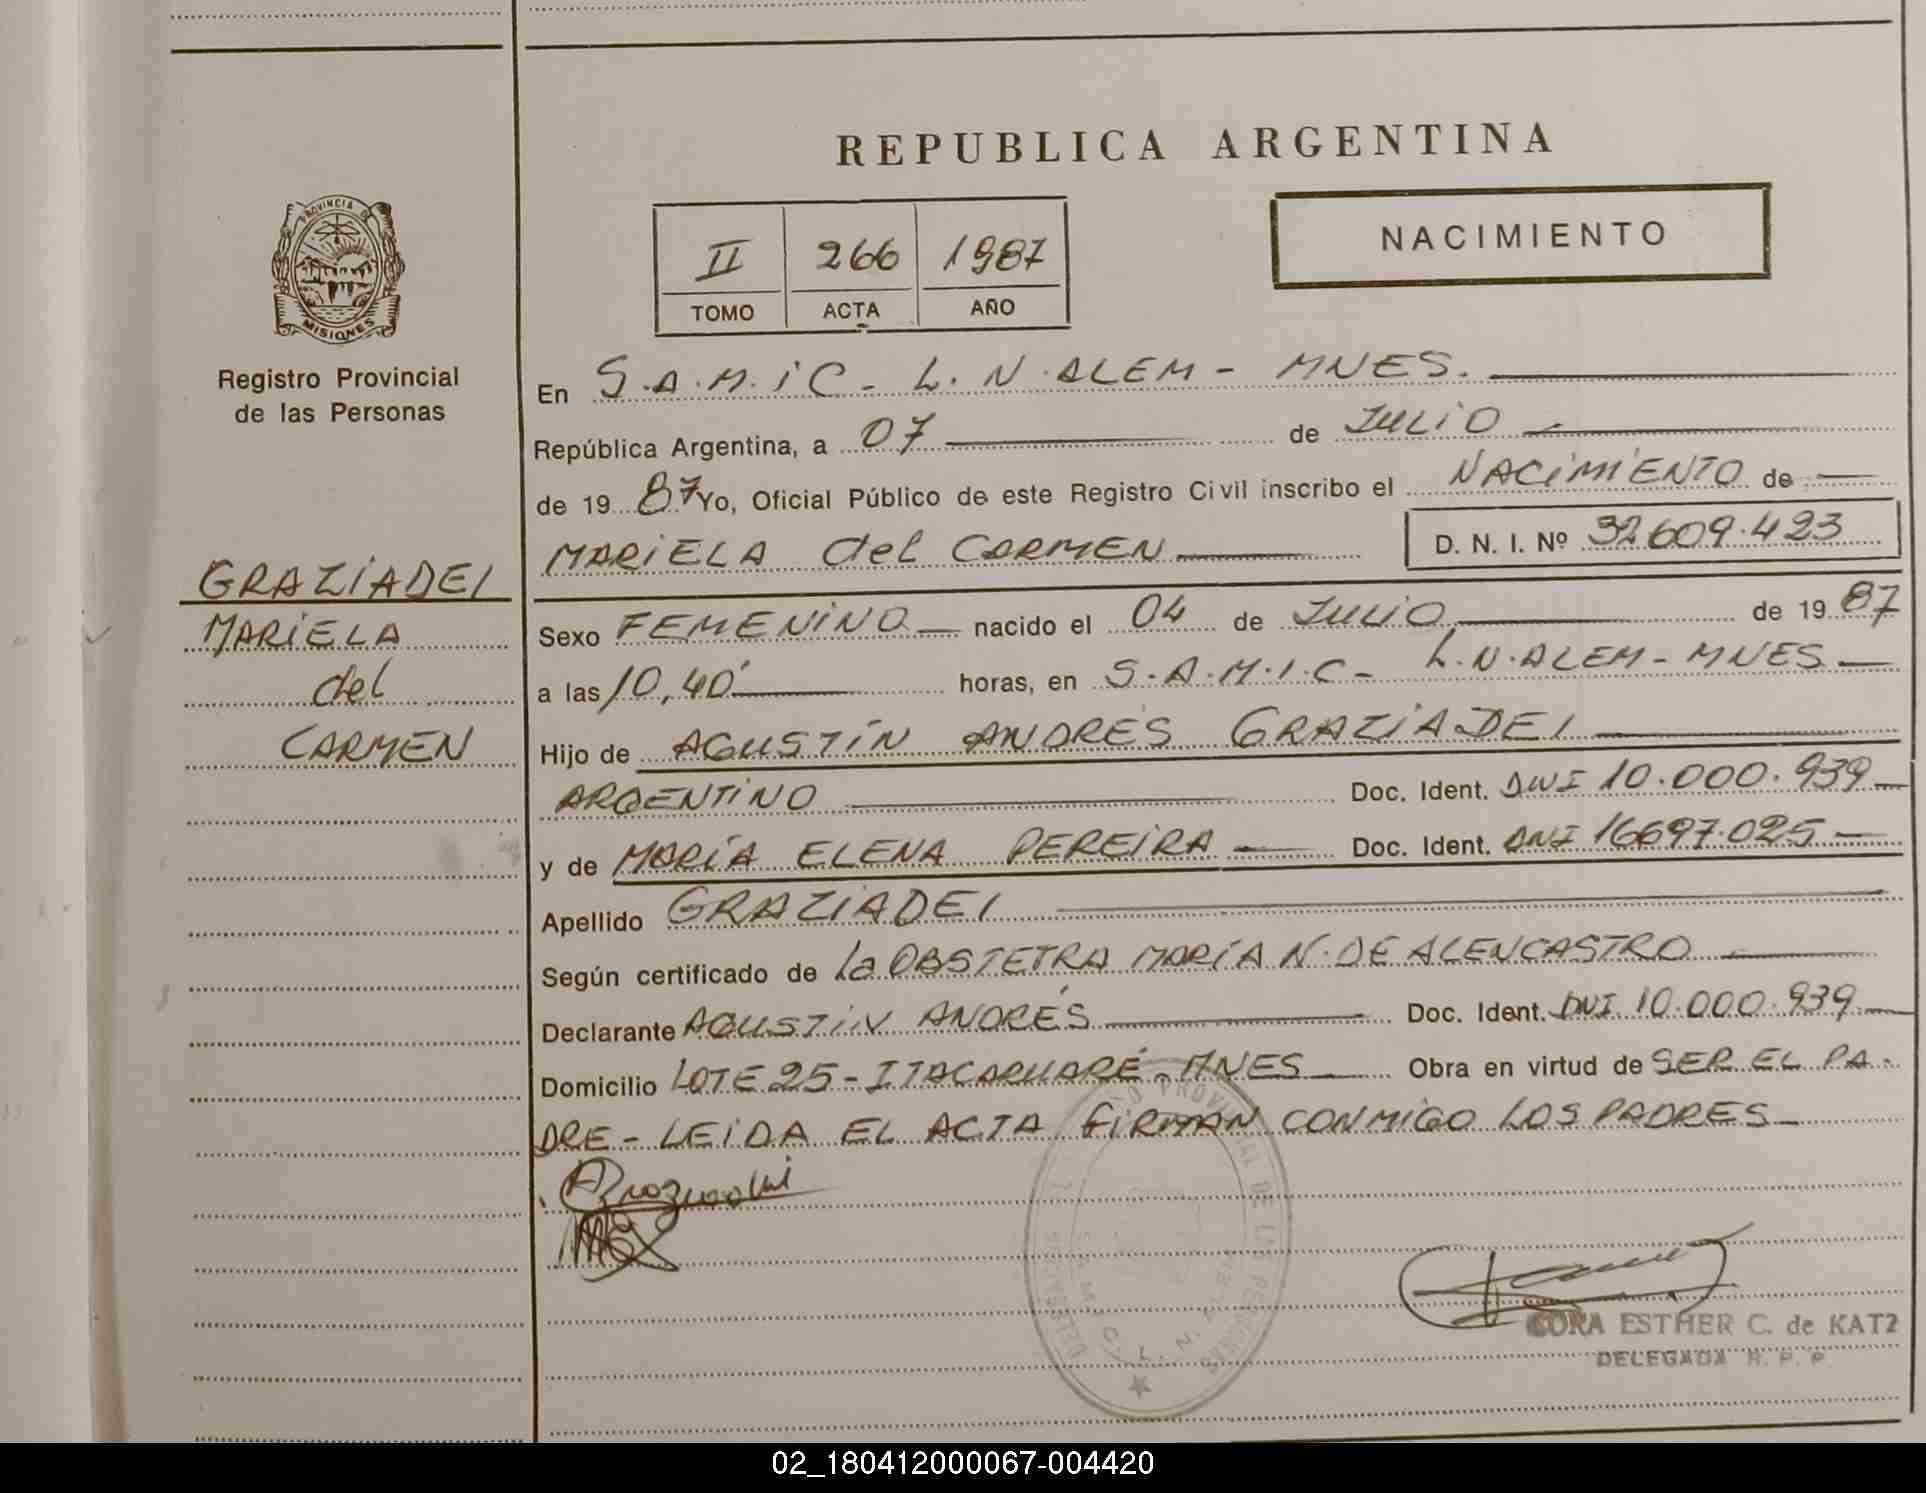 REPUBLICA ARGENTINA
PROVINCIA DE
MISIONES
Registro Provincial
de las Personas
GRAZIADEI
MARIELA
del
CARMEN
II 266 1987
TOMO ACTA AÑO
NACIMIENTO
En S.A.M.iC - L.N.ALEM - MNES.
República Argentina, a 07 de JULiO
de 19 87 Yo, Oficial Público de este Registro Civil inscribo el NACiMiENTO de
MARiELA del CARMEN D. N. I. Nº 32609.423
Sexo FEMENiNO nacido el 04 de JULiO de 19 87
a las 10,40' horas, en S.A.M.I.C - L.N.ALEM - MNES
Hijo de AGUSTíN ANDRÉS GRAZiADEI
ARGENTiNO Doc. Ident. DNI 10.000.939
y de MARíA ELENA PEREiRA Doc. Ident. DNI 16697.025
Apellido GRAZiADEI
Según certificado de La OBSTETRA MARíA N. DE ALENCASTRO
Declarante AGUSTíN ANDRÉS Doc. Ident. DNI 10.000.939
Domicilio LOTE 25 - ITACARUARÉ - MNES Obra en virtud de SER EL PA-
DRE - LEiDA EL ACTA FiRMAN CONMiGO LOS PADRES
CORA ESTHER C. de KATZ
DELEGADA R. P. P.
02_180412000067-004420